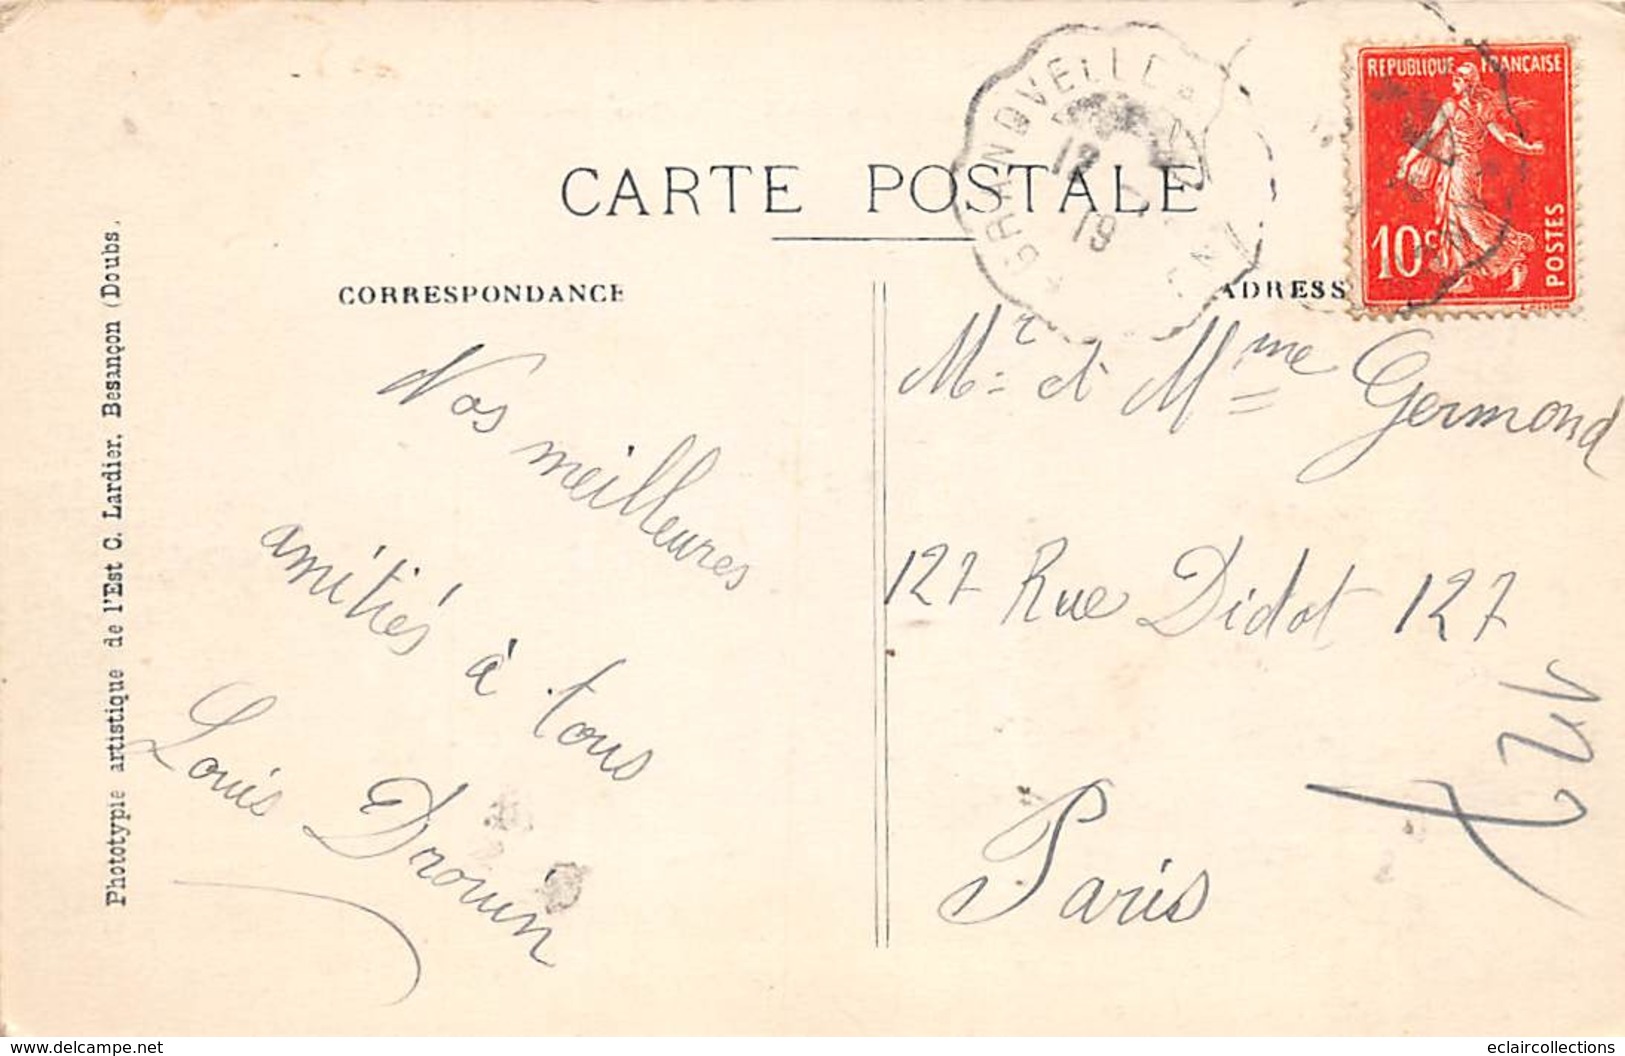 CARTE POSTALE
CORRESPONDANCE
ADRESS
REPUBLIQUE FRANÇAISE
10c
POSTES
GRANDVELLE
12
19
Nos meilleures
amitiés à tous
Louis Drouin
Mr et Mme Germond
127 Rue Didot 127
Paris
Phototypie artistique de l'Est C. Lardier, Besançon (Doubs.
www.delcampe.net
eclaircollections